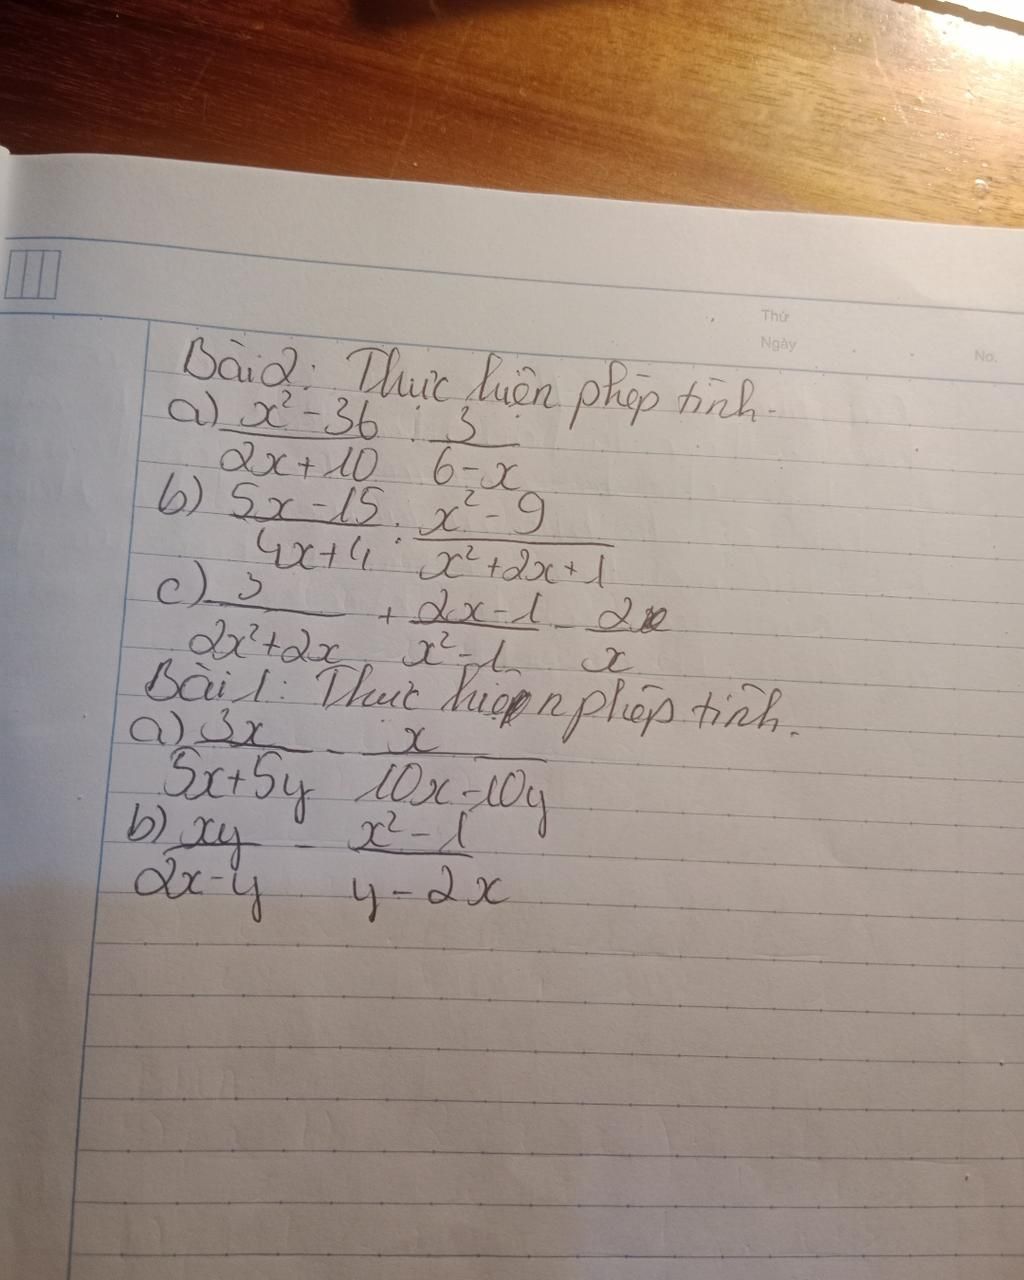 Thứ
Ngày
No.
Bài 2: Thực hiện phép tính.
a) x² - 36 / 2x + 10 : 3 / 6 - x
b) 5x - 15 / 4x + 4 : x² - 9 / x² + 2x + 1
c) 3 / 2x² + 2x + 2x - 1 / x² - 1 - 2 / x
Bài 1: Thực hiện phép tính.
a) 3x / 5x + 5y - x / 10x - 10y
b) xy / 2x - y - x² - 1 / y - 2x